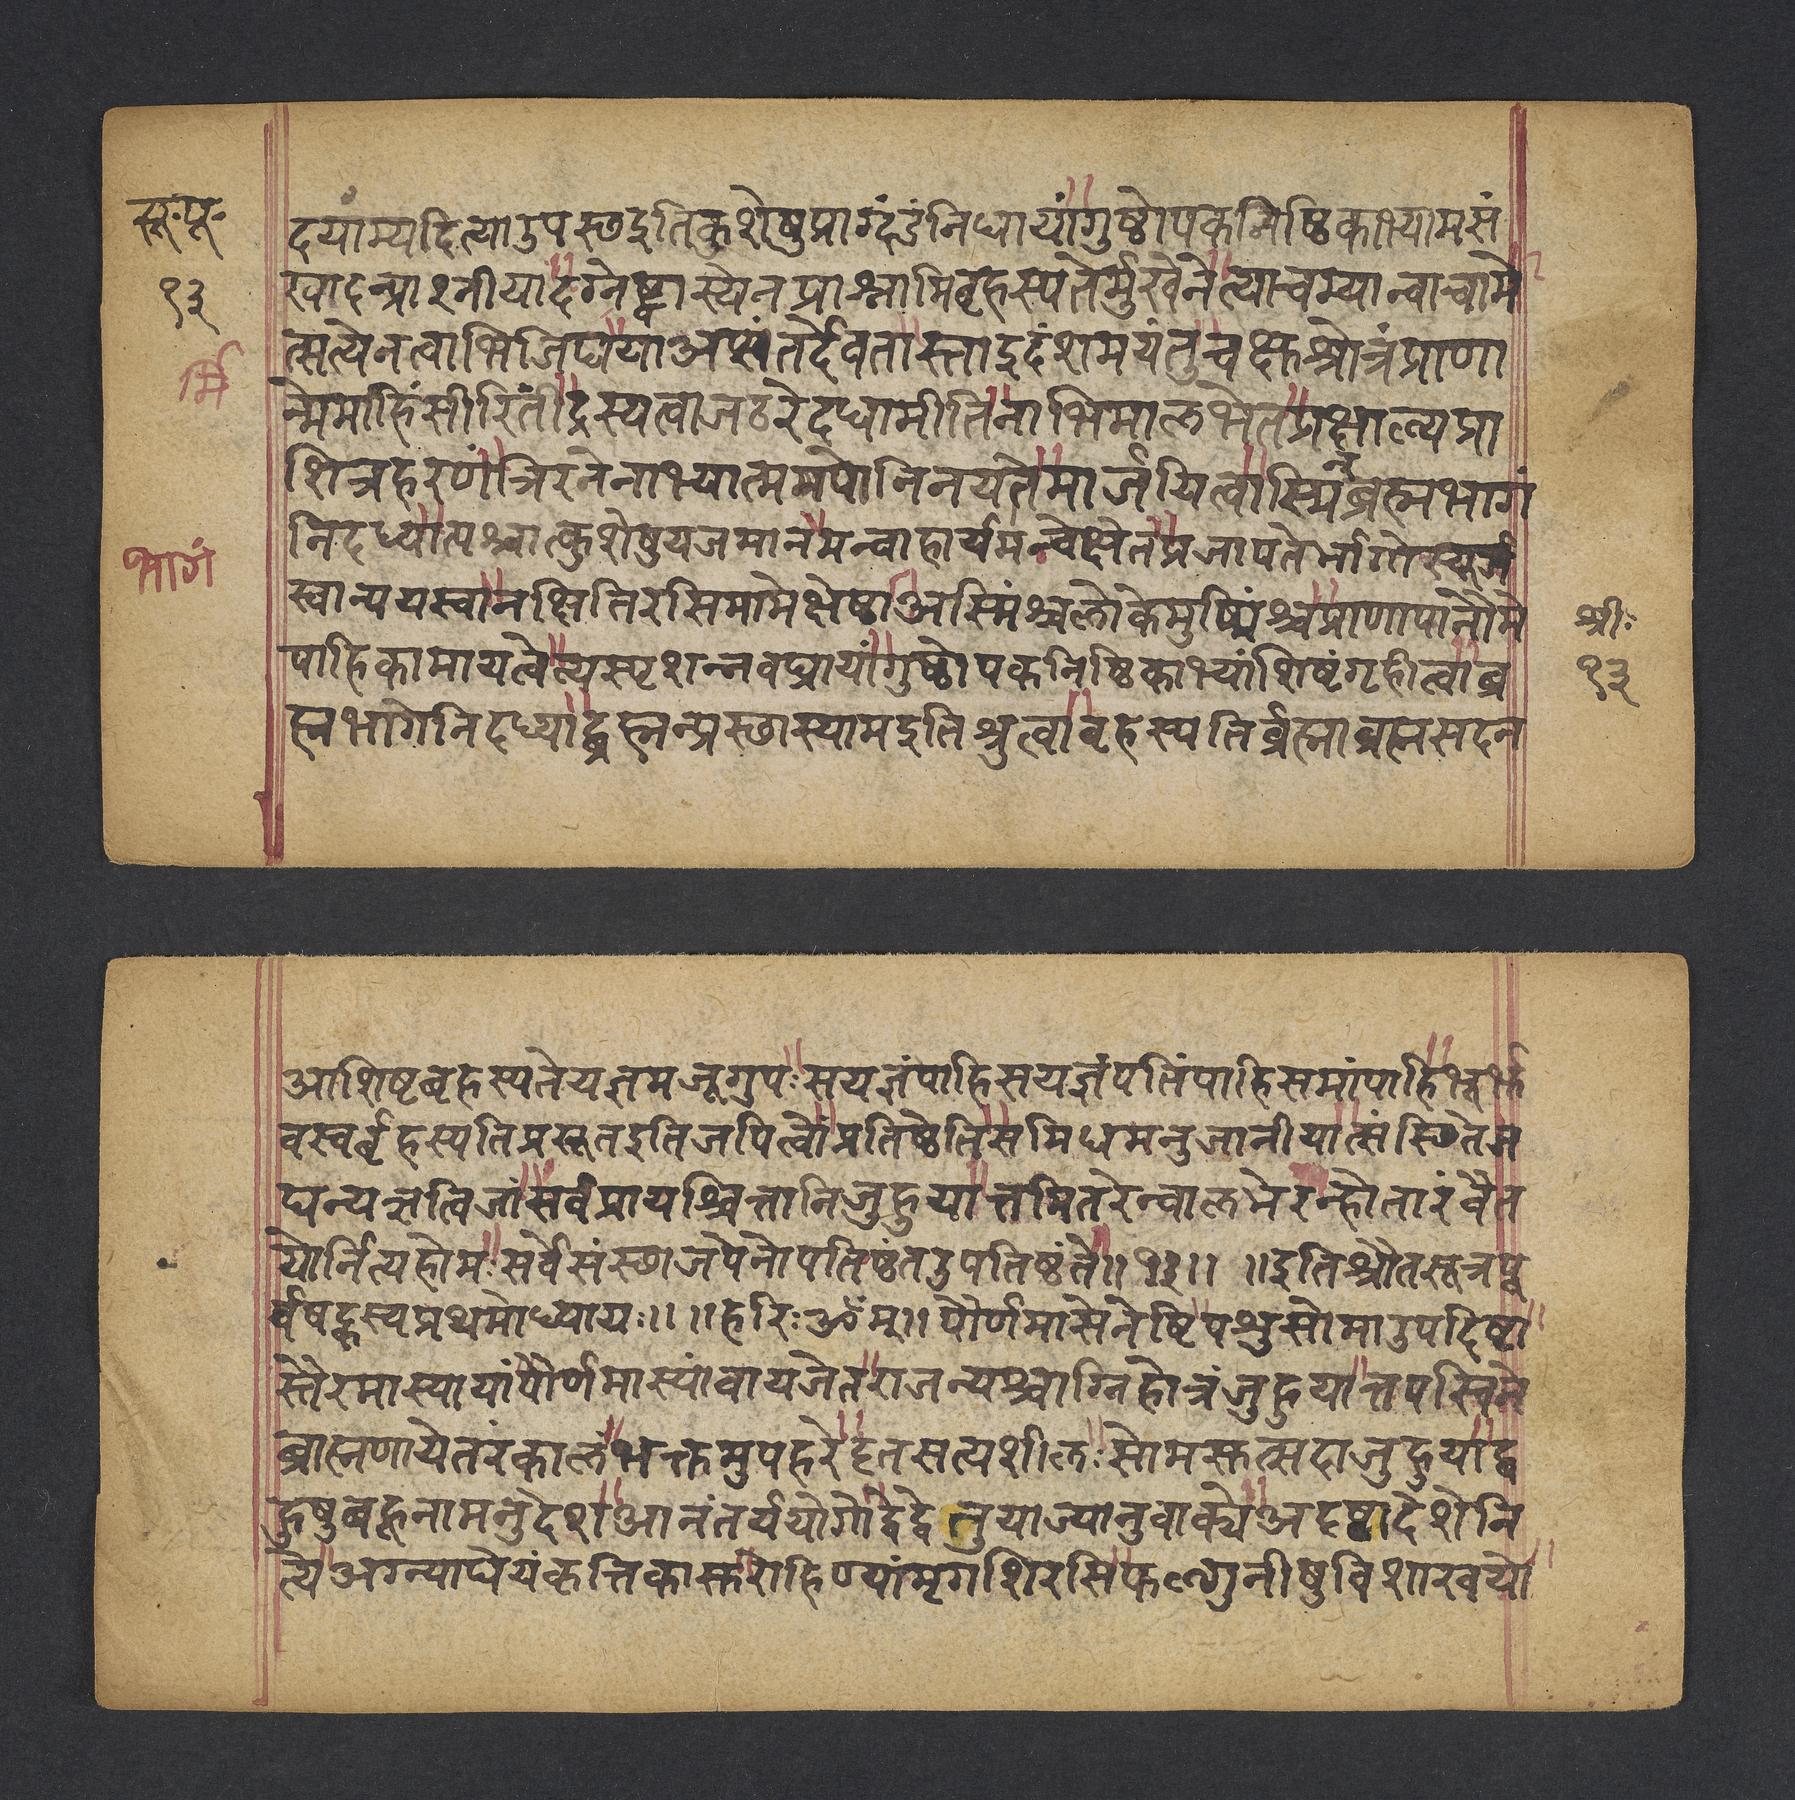 सू॰पू॰
१३
र्मि
भागं
दयाम्यदित्याउपस्छइतिकुशेषुप्राग्दंडंनिधायांगुष्ठोपकनिष्ठिकाभ्यामसं
खादन्प्राश्नीयादग्नेष्ट्वास्येनप्राश्नामिबृहस्पतेर्मुखेनेत्याचम्यान्वाचामे
त्सत्येनत्वाभिजिघर्यायाअप्संतर्देवतास्ताइदंशमयंतुचक्षुश्रोत्रंप्राणा
न्मेमाहिंसीरितींद्रस्यत्वाजठरेदधामीतिनाभिमालभेतप्रक्षाल्यप्रा
शित्रहरणंत्रिरनेनाभ्यात्ममपोनिनयतेमार्जयित्वास्मिन्ब्रह्मभागं
निदध्यात्पश्चात्कुशेषुयजमानमन्वाहार्यमन्वेक्षेतप्रजापतेर्भागोस्यूर्ज
स्वान्पयस्वानक्षितिरसिमामेक्षेष्ठाअस्मिंश्चलोकेमुष्मिंश्चप्राणापानौमे
पाहिकामायत्वेत्यस्पृशन्नवघ्रायांगुष्ठोपकनिष्ठिकाभ्यांशिष्टंगृहीत्वाब्र
ह्मभागेनिदध्याद्ब्रह्मन्प्रस्छास्यामइतिश्रुत्वाबृहस्पतिर्ब्रह्माब्रह्मसदन
श्रीः
१३
आशिष्टबृहस्पतेयज्ञमजूगुपःसयज्ञंपाहिसयज्ञंपतिंपाहिसमांपाहिभूर्भु
वस्वर्बृहस्पतिप्रसूतइतिजपित्वोंप्रतिष्ठेतिसमिधमनुजानीयात्संस्छितेज
घन्यऋत्विजांसर्वप्रायश्चित्तानिजुहुयात्तमितरेन्वालभेरन्होतारंवैत
योर्नित्यहोमःसर्वेसंस्छाजपेनोपतिष्ठंतउपतिष्ठंते॥१३॥ ॥इतिश्रौतसूत्रपू
र्वषट्कस्यप्रथमोध्यायः॥ ॥हरिःॐम्॥पौर्णमासेनेष्टिपशुसोमाउपदिष्टा
स्तैरमास्यायांपौर्णमास्यांवायजेतराजन्यश्चाग्निहोत्रंजुहुयात्तपस्विने
ब्राह्मणायेतरंकालंभक्तमुपहरेदृतसत्यशीलःसोमसुत्सदाजुहुयाद्ब
हुषुबहूनामनुदेशआनंतर्ययोगोद्वेद्वेतुयाज्यानुवाक्येअदृष्टादेशेनि
त्येअग्न्याधेयंकृत्तिकासुरोहिण्यांमृगशिरसिफल्गुनीषुविशाखयो